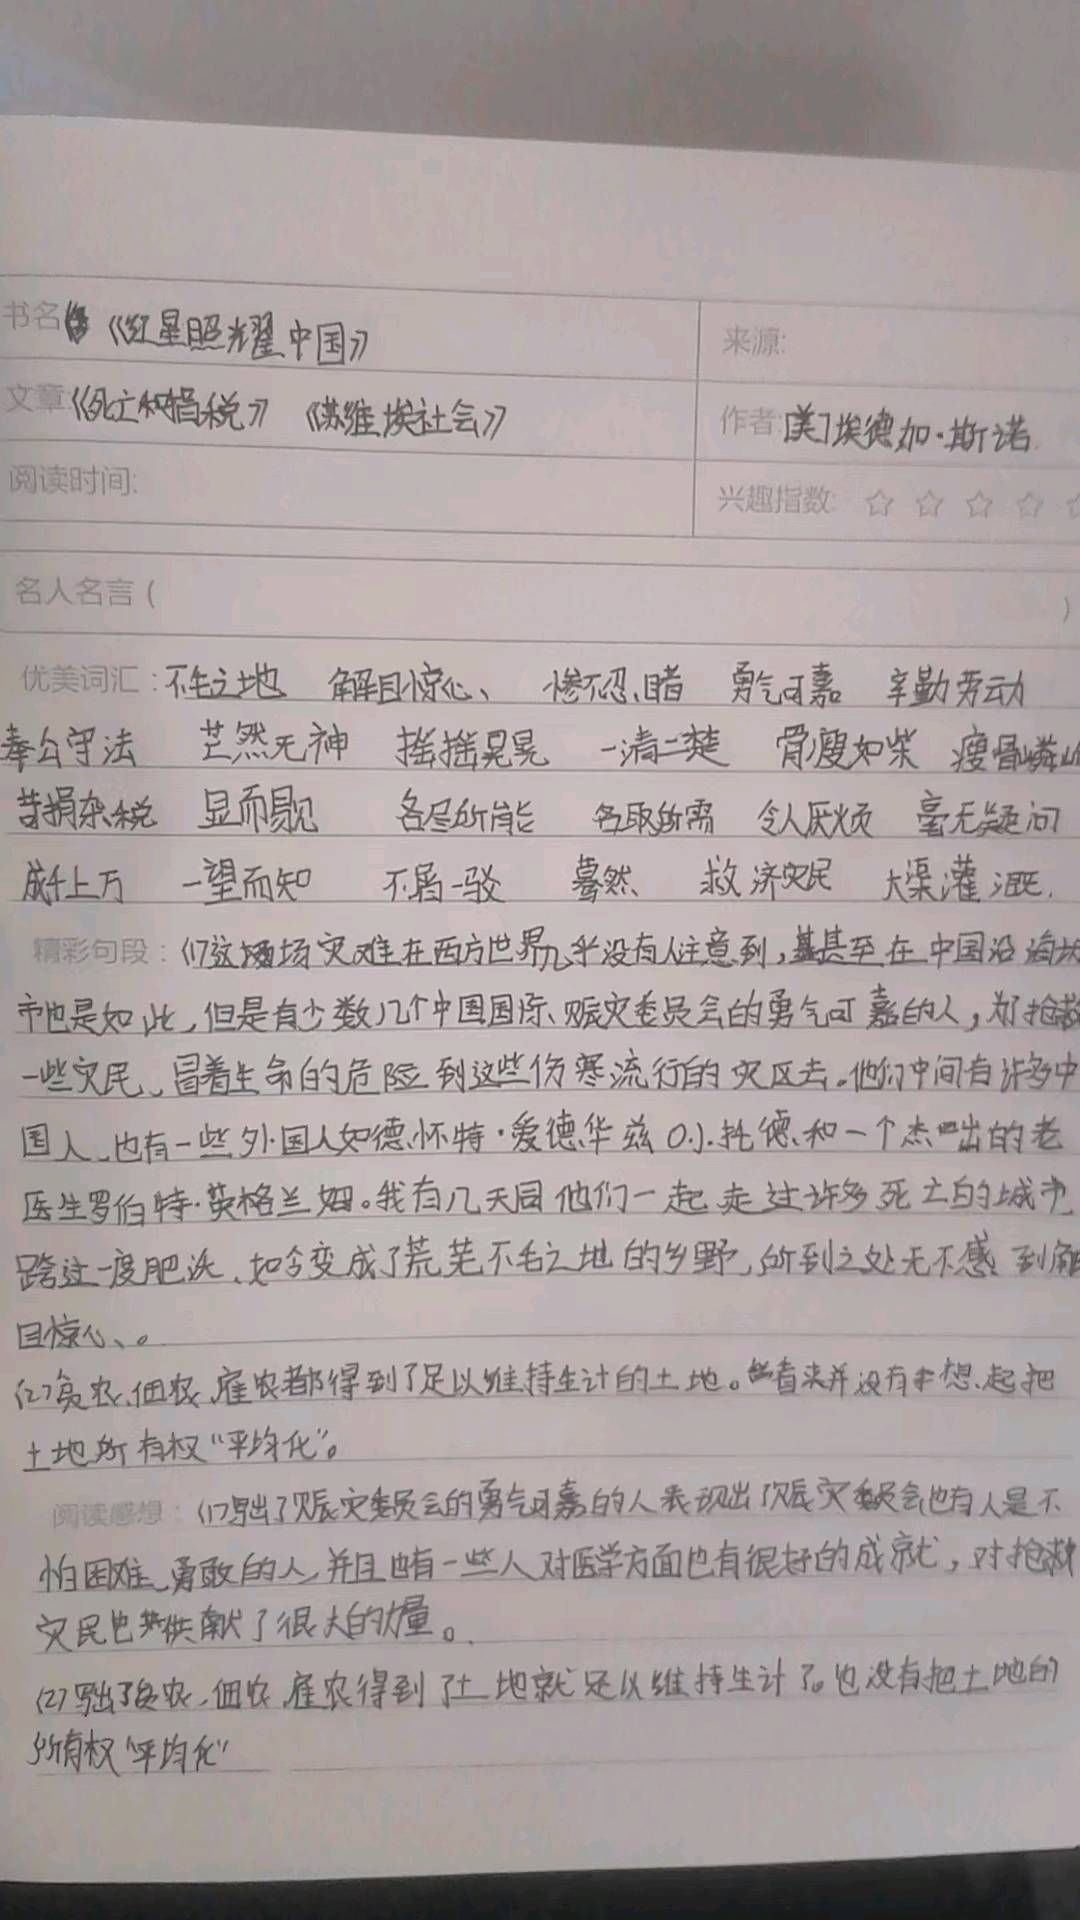 书名 《红星照耀中国》
来源:
文章《死亡和捐税》 《苏维埃社会》
作者:[美]埃德加·斯诺
阅读时间:
兴趣指数: ☆ ☆ ☆ ☆
名人名言 ( )
优美词汇: 不毛之地 触目惊心、 惨不忍睹 勇气可嘉 辛勤劳动
奉公守法 茫然无神 摇摇晃晃 一清二楚 骨瘦如柴 瘦骨嶙
苛捐杂税 显而易见 各尽所能 各取所需 令人厌烦 毫无疑问
成千上万 一望而知 不屑一驳 蓦然 救济灾民 大渠灌溉.
精彩句段: (1)这场灾难在西方世界几乎没有人注意到,甚至在中国沿海
市也是如此,但是有少数几个中国国际、赈灾委员会的勇气可嘉的人,为抢救
一些灾民、冒着生命的危险到这些伤寒流行的灾区去。他们中间有许多中
国人、也有一些外国人如德怀特·爱德华兹O.J.托德和一个杰出的老
医生罗伯特·英格兰姆。我有几天同他们一起走过许多死亡的城市
跨过一度肥沃、如今变成了荒芜不毛之地的乡野,所到之处无不感到触
目惊心、。
(2)贫农、佃农、雇农都得到了足以维持生计的土地。看来并没有想起把
土地所有权“平均化”。
阅读感想: (1)写出了赈灾委员会的勇气可嘉的人表现出了赈灾委员会也有人是不
怕困难、勇敢的人,并且也有一些人对医学方面也有很好的成就,对抢救
灾民也供献了很大的力量。
(2)写出了贫农、佃农、雇农得到了土地就足以维持生计了。也没有把土地的
所有权“平均化”